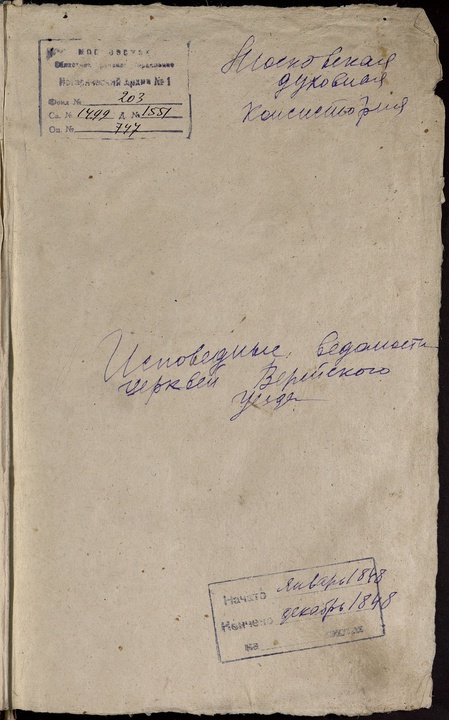 МОСКОВСКАЯ
Областное
Исторический Архив № 1
Фонд № 203
Св. № 1499 Д. № 1551
Оп. № 747
Московская
духовная
Консистория
Исповедные ведомости
церквей Верейского
уезда
Начато январь 1848
Кончено декабрь 1848
на